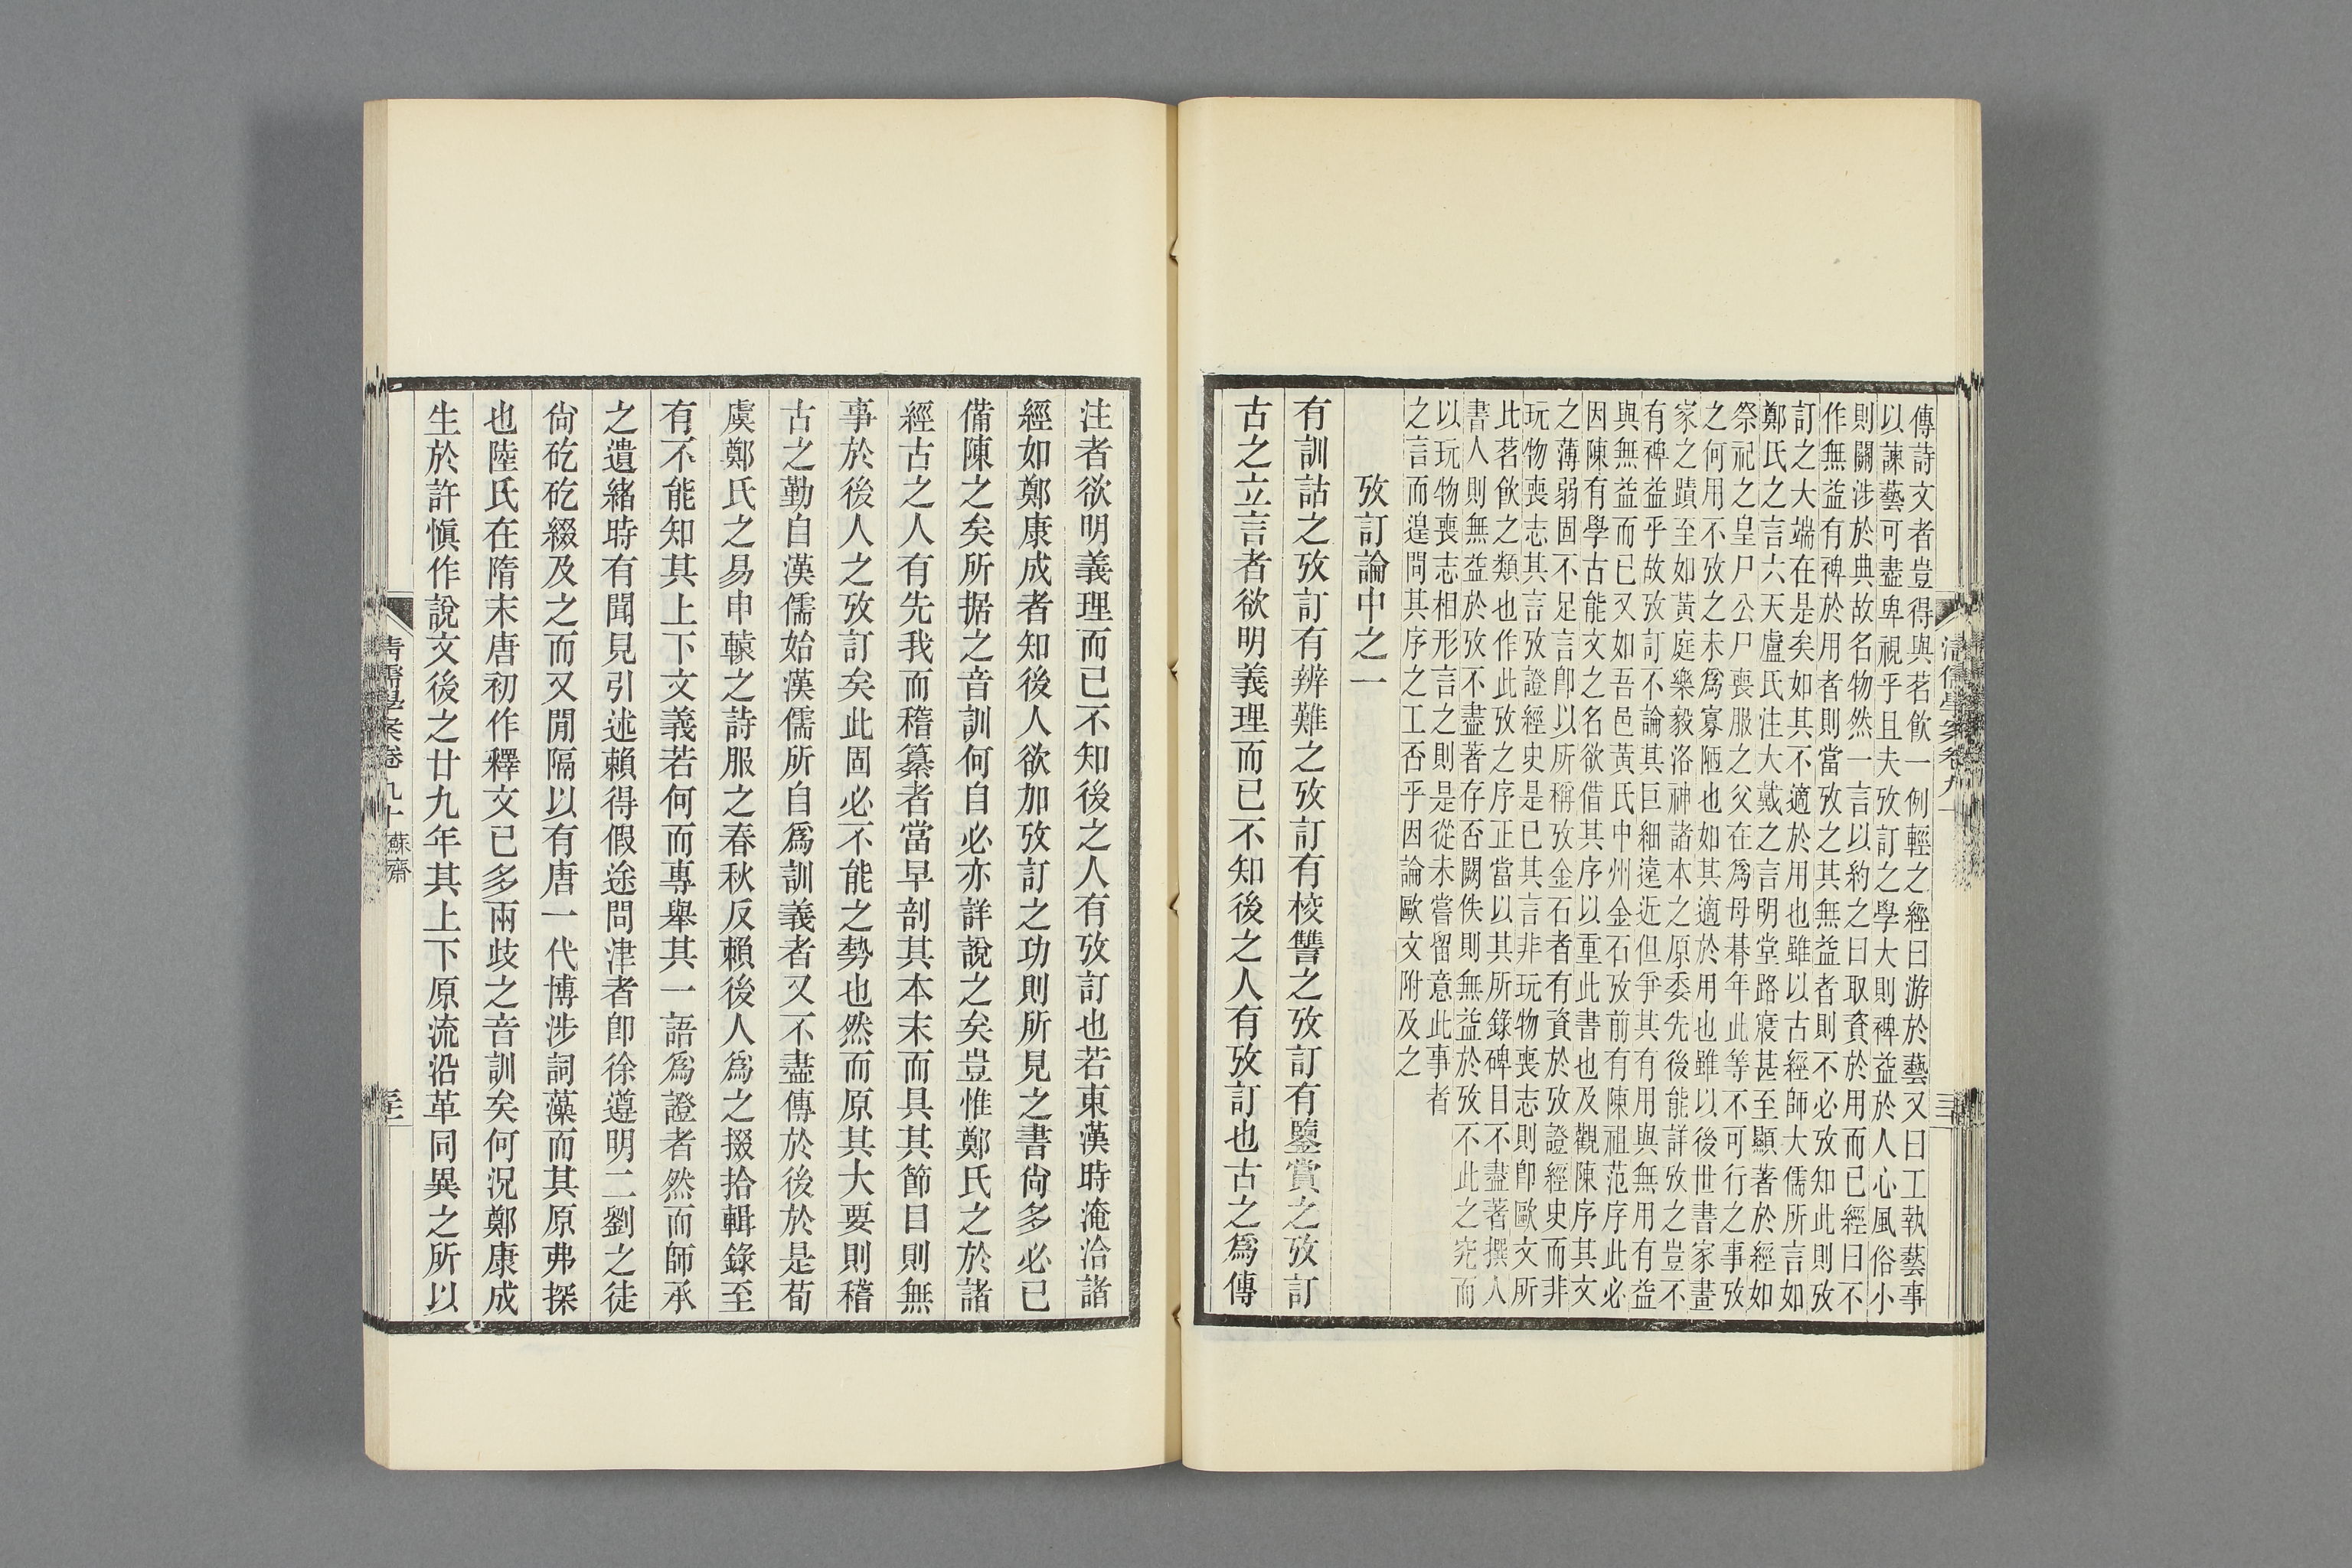 傳詩文者豈得與茗飲一例輕之經曰游於藝又曰工執藝事
以諫藝可盡卑視乎且夫攷訂之學大則裨益於人心風俗小
則關涉於典故名物然一言以約之曰取資於用而已經曰不
作無益有裨於用者則當攷之其無益者則不必攷知此則攷
訂之大端在是矣如其不適於用也雖以古經師大儒所言如
鄭氏之言六天盧氏注大戴之言明堂路寢甚至顯著於經如
祭祀之皇尸公尸喪服之父在爲母朞年此等不可行之事攷
之何用不攷之未爲寡陋也如其適於用也雖以後世書家畫
家之蹟至如黃庭樂毅洛神諸本之原委先後能詳攷之豈不
有裨益乎故攷訂不論其巨細遠近但爭其有用與無用有益
與無益而已又如吾邑黃氏中州金石攷前有陳祖范序此必
因陳有學古能文之名欲借其序以重此書也及觀陳序其文
之薄弱固不足言卽以所稱攷金石者有資於攷證經史而非
玩物喪志其言攷證經史是已其言非玩物喪志則卽歐文所
此茗飲之類也作此攷之序正當以其所錄碑目不盡著撰人
書人則無益於攷不盡著存否闕佚則無益於攷不此之究而
以玩物喪志相形言之則是從未嘗留意此事者
之言而遑問其序之工否乎因論歐文附及之
攷訂論中之一
有訓詁之攷訂有辨難之攷訂有校讐之攷訂有鑒賞之攷訂
古之立言者欲明義理而已不知後之人有攷訂也古之爲傳
清儒學案卷九
三
注者欲明義理而已不知後之人有攷訂也若東漢時淹洽諸
經如鄭康成者知後人欲加攷訂之功則所見之書尙多必已
備陳之矣所据之音訓何自必亦詳說之矣豈惟鄭氏之於諸
經古之人有先我而稽纂者當早剖其本末而具其節目則無
事於後人之攷訂矣此固必不能之勢也然而原其大要則稽
古之勤自漢儒始漢儒所自爲訓義者又不盡傳於後於是荀
虞鄭氏之易申轅之詩服之春秋反賴後人爲之掇拾輯錄至
有不能知其上下文義若何而專舉其一語爲證者然而師承
之遺緒時有聞見引述賴得假途問津者卽徐遵明二劉之徒
尙矻矻綴及之而又閒隔以有唐一代博涉詞藻而其原弗探
也陸氏在隋末唐初作釋文已多兩歧之音訓矣何況鄭康成
生於許愼作說文後之廿九年其上下原流沿革同異之所以
清儒學案卷九十 蘇齋